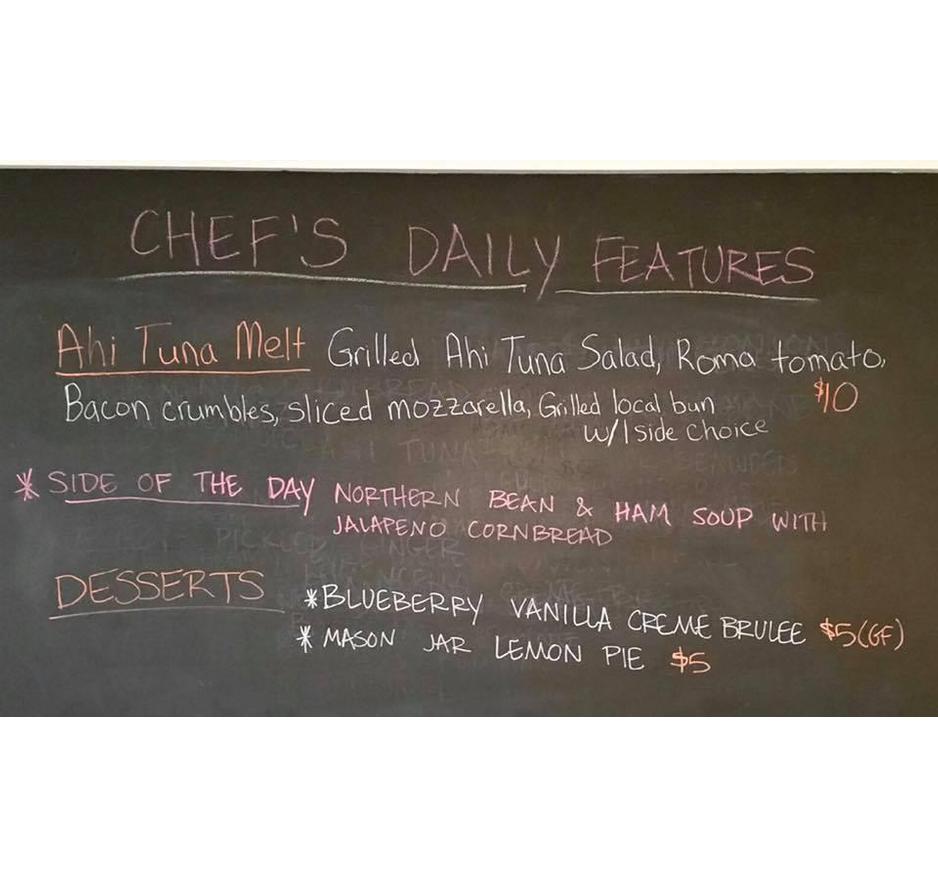 CHEF'S DAILY FEATURES
Ahi Tuna Melt Grilled Ahi Tuna Salad, Roma tomato,
Bacon crumbles, sliced mozzarella, Grilled local bun $10
w/1 side choice
* SIDE OF THE DAY NORTHERN BEAN & HAM SOUP WITH
JALAPENO CORNBREAD
DESSERTS *BLUEBERRY VANILLA CREME BRULEE $5(GF)
* MASON JAR LEMON PIE $5